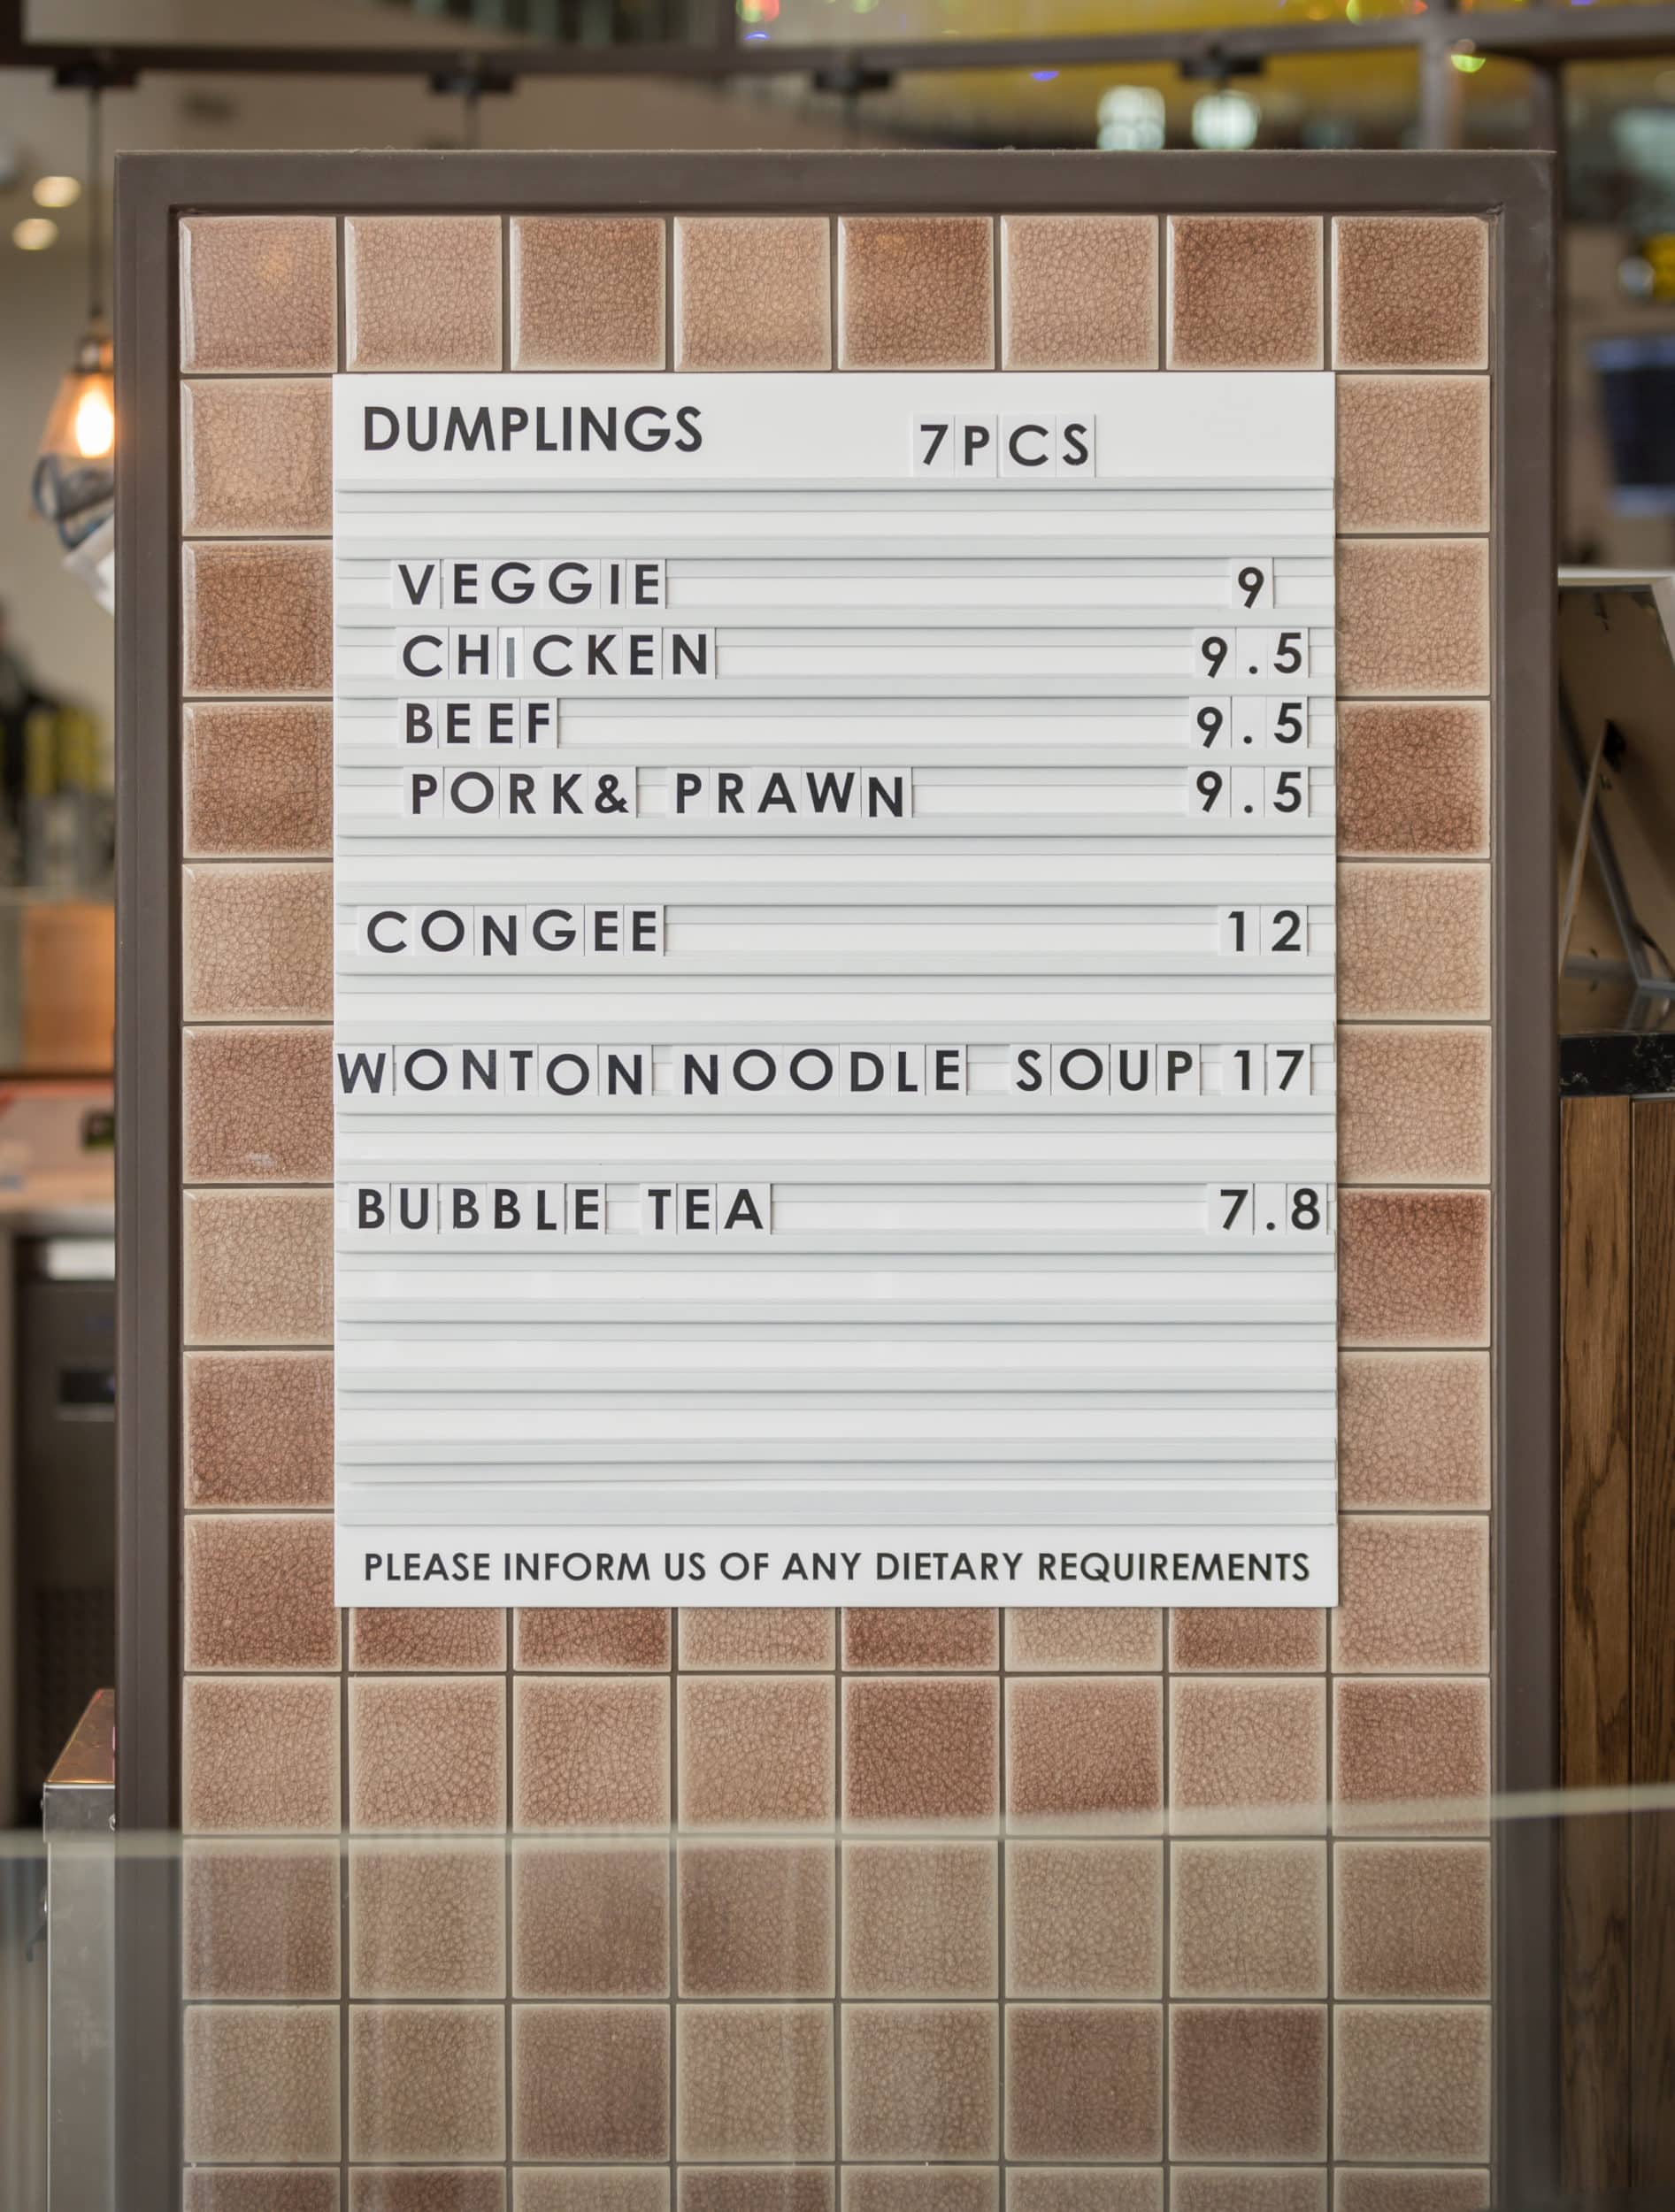 DUMPLINGS 7PCS
VEGGIE 9
CHICKEN 9.5
BEEF 9.5
PORK& PRAWN 9.5
CONGEE 12
WONTON NOODLE SOUP 17
BUBBLE TEA 7.8
PLEASE INFORM US OF ANY DIETARY REQUIREMENTS